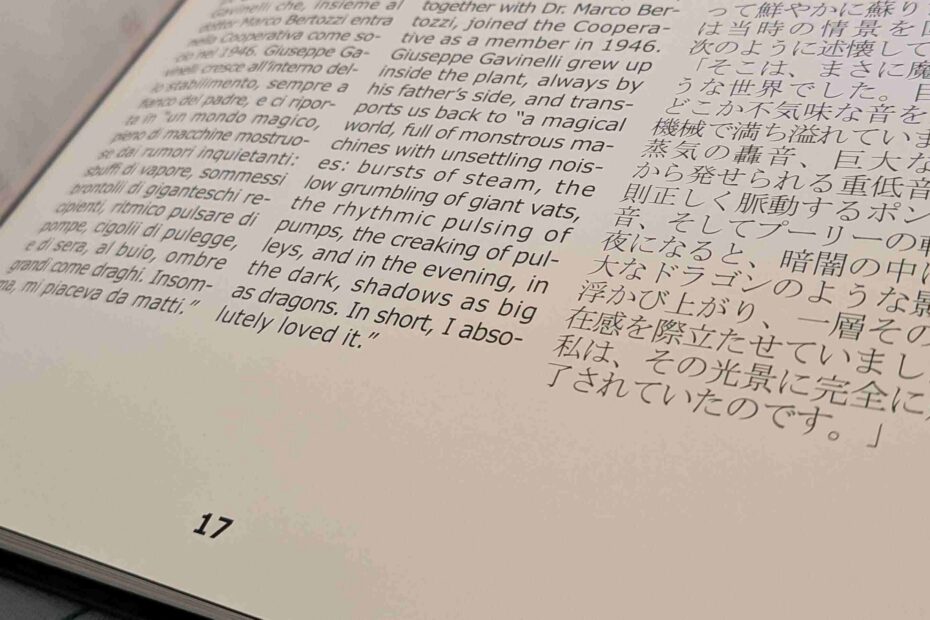 Gavinelli che, insieme al
dottor Marco Bertozzi entra
nella Cooperativa come so-
cio nel 1946. Giuseppe Ga-
vinelli cresce all'interno del-
lo stabilimento, sempre a
fianco del padre, e ci ripor-
ta in "un mondo magico,
pieno di macchine mostruo-
se dai rumori inquietanti:
sbuffi di vapore, sommessi
brontolii di giganteschi re-
cipienti, ritmico pulsare di
pompe, cigolii di pulegge,
e di sera, al buio, ombre
grandi come draghi. Insom-
ma, mi piaceva da matti."
together with Dr. Marco Ber-
tozzi, joined the Coopera-
tive as a member in 1946.
Giuseppe Gavinelli grew up
inside the plant, always by
his father's side, and trans-
ports us back to "a magical
world, full of monstrous ma-
chines with unsettling nois-
es: bursts of steam, the
low grumbling of giant vats,
the rhythmic pulsing of
pumps, the creaking of pul-
leys, and in the evening, in
the dark, shadows as big
as dragons. In short, I abso-
lutely loved it."
って鮮やかに蘇り
は当時の情景を
次のように述懐して
「そこは、まさに魔
うな世界でした。目
どこか不気味な音を
機械で満ち溢れていま
蒸気の轟音、巨大な
から発せられる重低音
則正しく脈動するポン
音、そしてプーリーの
夜になると、暗闇の中に
大なドラゴンのような影
浮かび上がり、一層その
在感を際立たせていまし
私は、その光景に完全に
了されていたのです。」
17